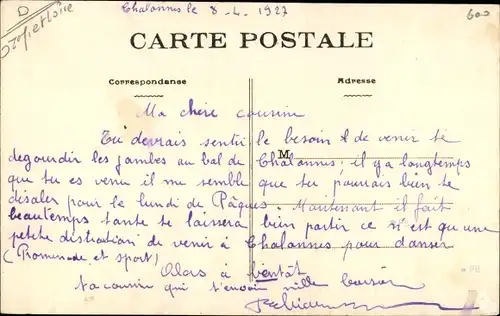 Chalonnes le 8-4.1927
D
600
CARTE POSTALE
Correspondance
Adresse
M
Ma chère cousine
Tu devrais sentir le besoin de venir te
degourdir les jambes au bal de Chalonnes, il y a longtemps
que tu es venu il me semble que tu pourrais bien te
disaler pour le lundi de Pâques. Maintenant il fait
beau temps tante te laissera bien partir ce n'est qu'une
petite distration de venir à Chalonnes pour danser
(Promenade et sport)
Alors à bientôt
ta cousine qui t'envoie mille baisers